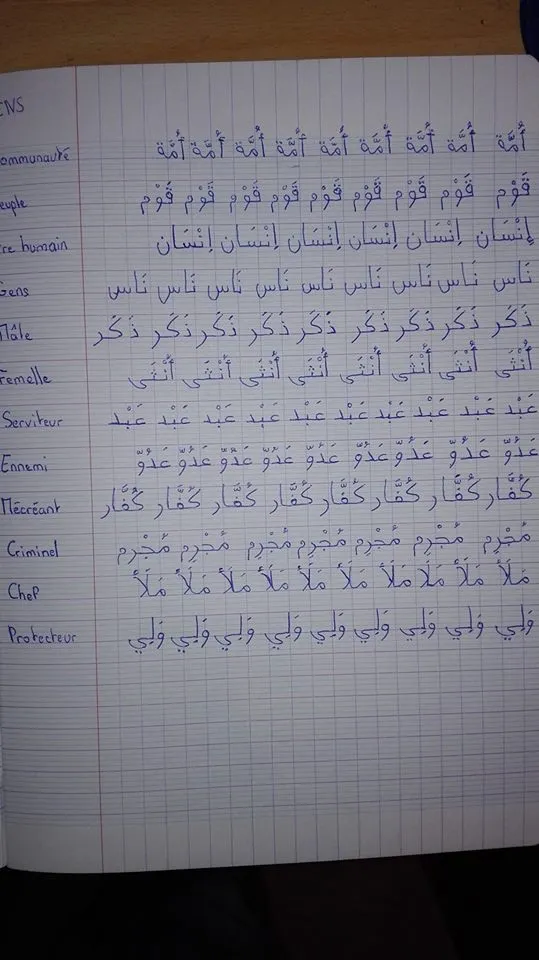 ommunauté أُمَّة أُمَّة أُمَّة أُمَّة أُمَّة أُمَّة أُمَّة أُمَّة أُمَّة
euple قَوْم قَوْم قَوْم قَوْم قَوْم قَوْم قَوْم قَوْم قَوْم
re humain إِنْسَان إِنْسَان إِنْسَان إِنْسَان إِنْسَان إِنْسَان
Gens نَاس نَاس نَاس نَاس نَاس نَاس نَاس نَاس نَاس
Mâle ذَكَر ذَكَر ذَكَر ذَكَر ذَكَر ذَكَر ذَكَر ذَكَر ذَكَر
Femelle أُنْثَى أُنْثَى أُنْثَى أُنْثَى أُنْثَى أُنْثَى أُنْثَى أُنْثَى
Serviteur عَبْد عَبْد عَبْد عَبْد عَبْد عَبْد عَبْد عَبْد عَبْد عَبْد
Ennemi عَدُوّ عَدُوّ عَدُوّ عَدُوّ عَدُوّ عَدُوّ عَدُوّ عَدُوّ عَدُوّ
Mécréant كُفَّار كُفَّار كُفَّار كُفَّار كُفَّار كُفَّار كُفَّار كُفَّار
Criminel مُجْرِم مُجْرِم مُجْرِم مُجْرِم مُجْرِم مُجْرِم مُجْرِم
Chef مَلَأ مَلَأ مَلَأ مَلَأ مَلَأ مَلَأ مَلَأ مَلَأ مَلَأ مَلَأ
Protecteur وَلِي وَلِي وَلِي وَلِي وَلِي وَلِي وَلِي وَلِي وَلِي